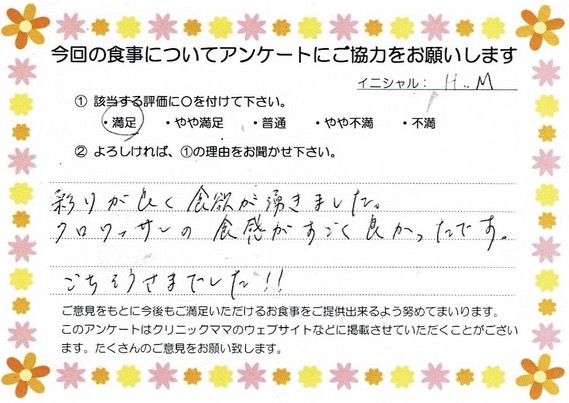 今回の食事についてアンケートにご協力をお願いします
イニシャル： H.M
① 該当する評価に〇を付けて下さい。
・満足 ・やや満足 ・普通 ・やや不満 ・不満
② よろしければ、①の理由をお聞かせ下さい。
彩りが良く食欲が湧きました。
クロワッサンの食感がすごく良かったです。
ごちそうさまでした!!
ご意見をもとに今後もご満足いただけるお食事をご提供出来るよう努めてまいります。
このアンケートはクリニックママのウェブサイトなどに掲載させていただくことがござい
ます。たくさんのご意見をお願い致します。